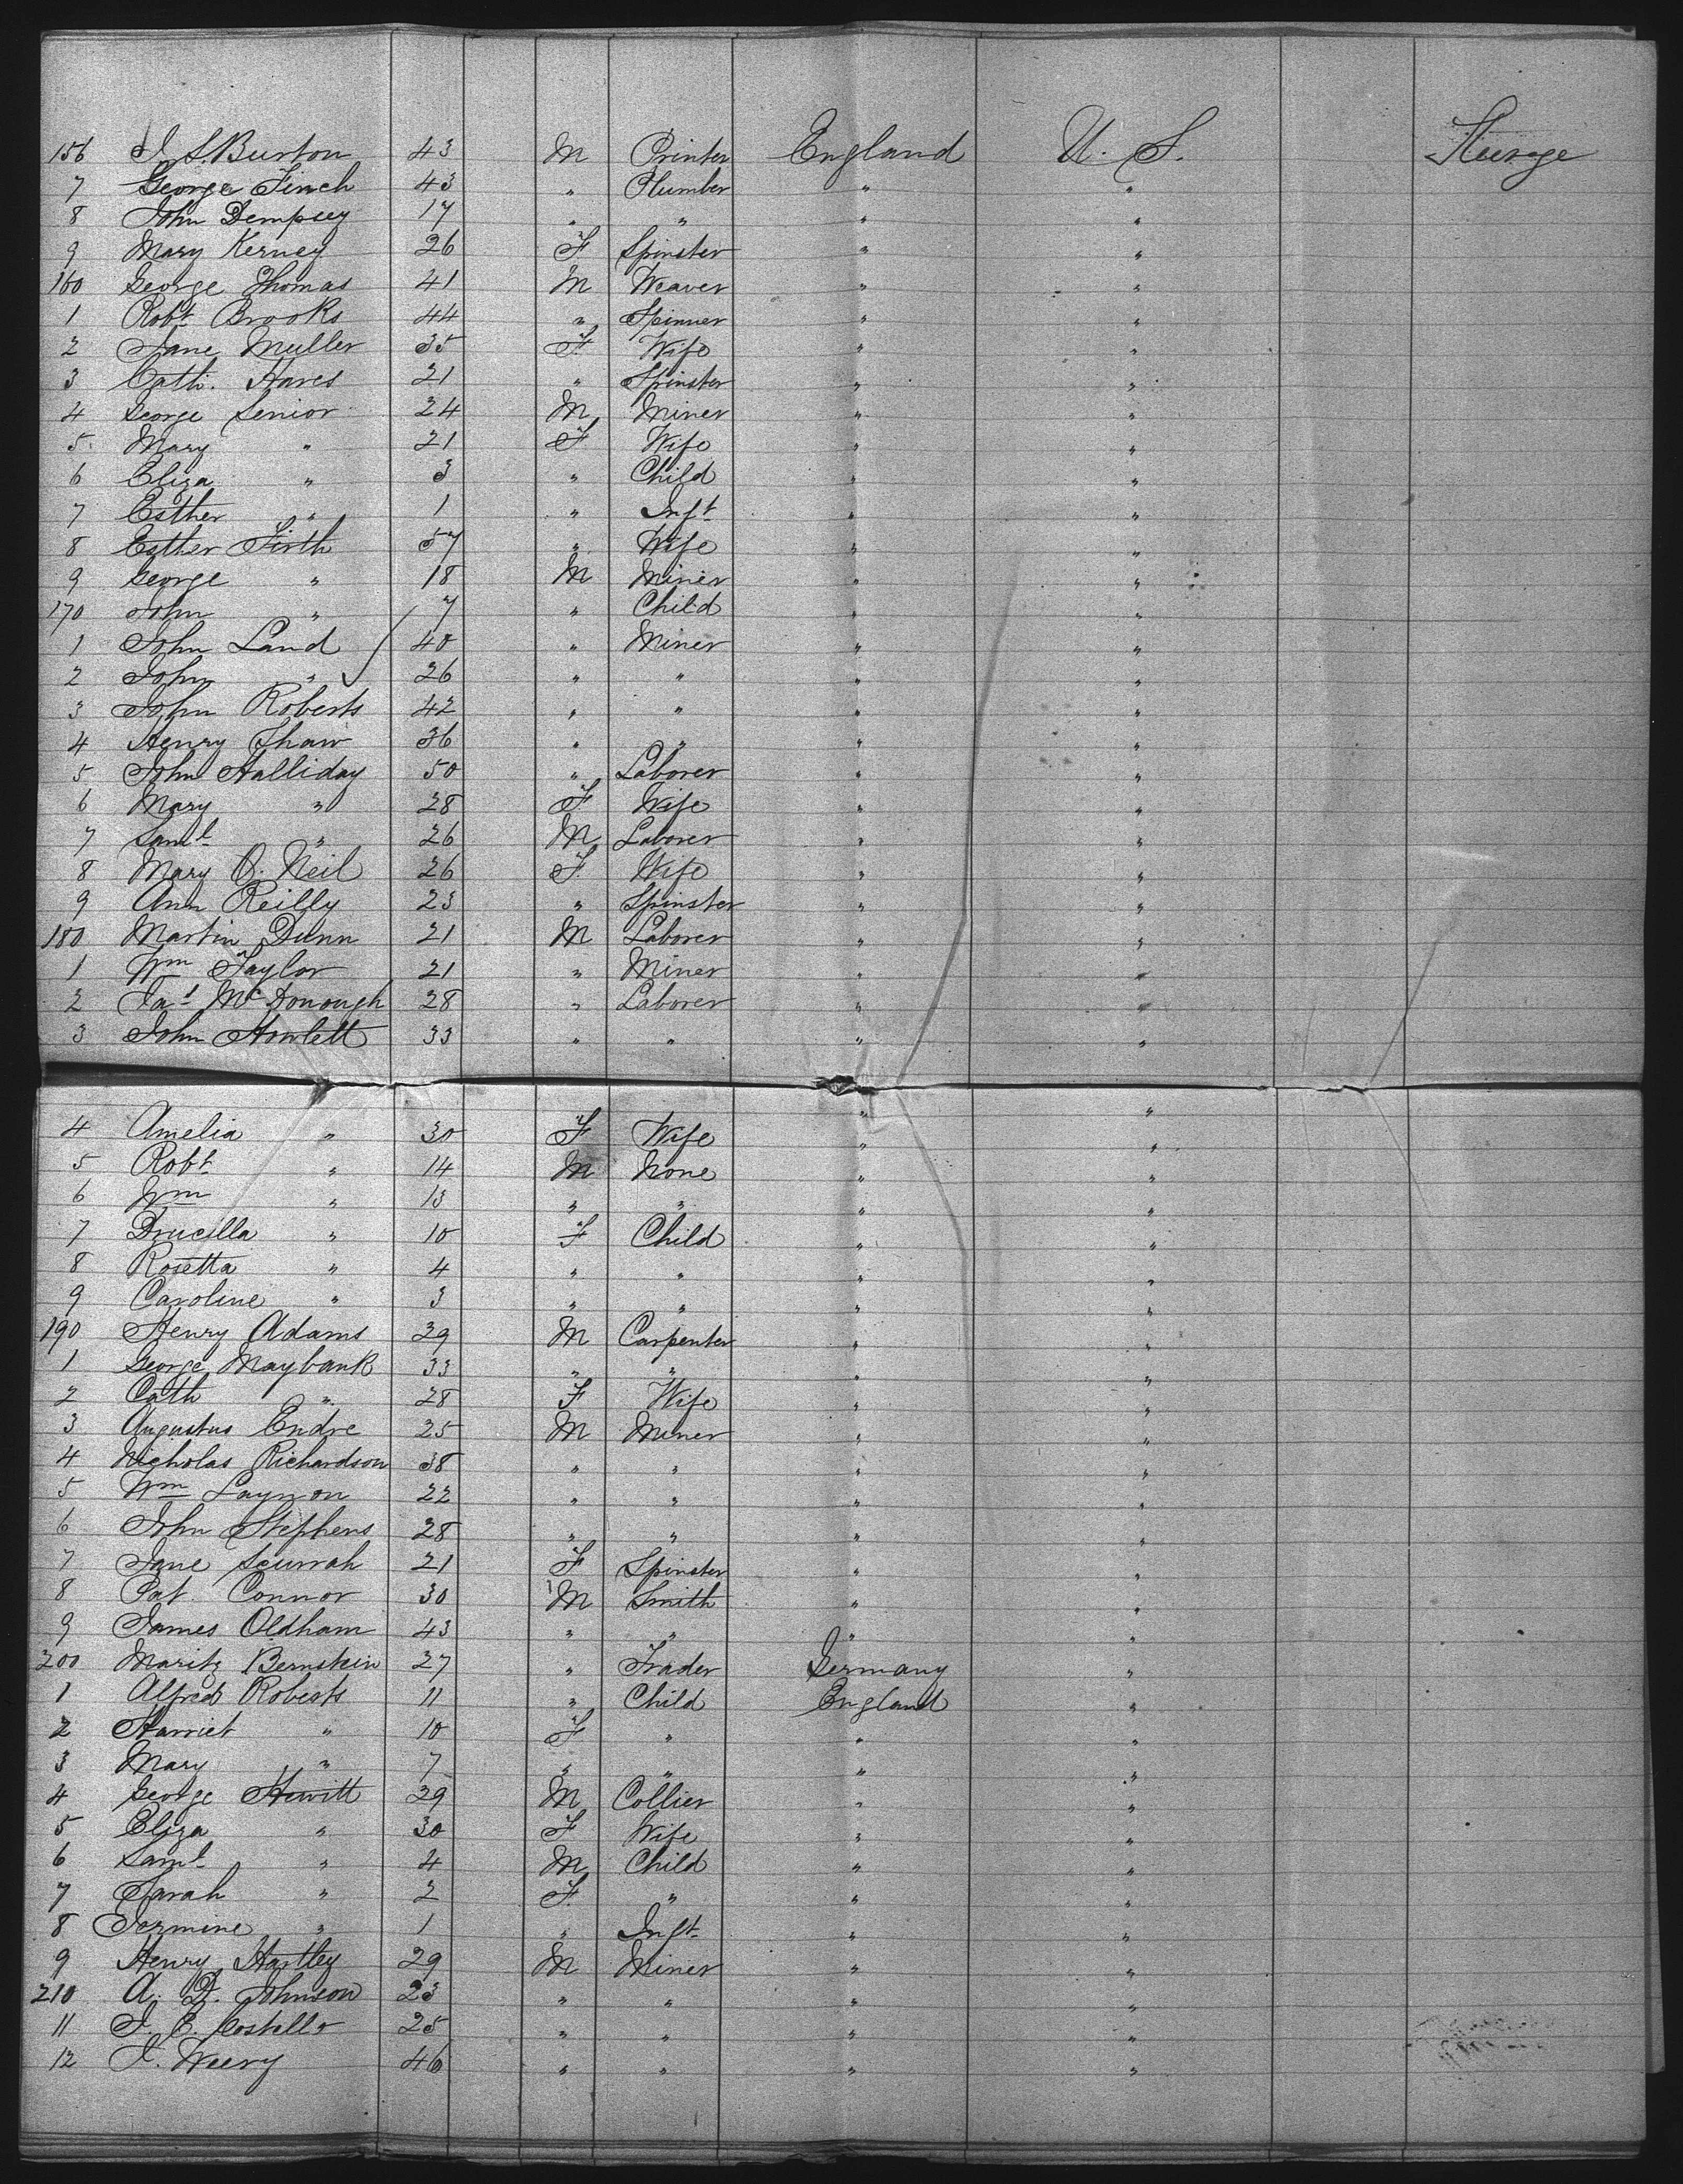 156 J. S. Burton 43 M Printer England U. S. Steerage
7 George Finch 43 " Plumber " "
8 John Dempsey 17 " " " "
9 Mary Kerney 26 F Spinster " "
160 George Thomas 41 M Weaver " "
1 Robt Brooks 44 " Spinner " "
2 Jane Muller 35 F Wife " "
3 Cath. Hares 21 " Spinster " "
4 George Senior 24 M Miner " "
5 Mary " 21 F Wife " "
6 Eliza " 3 " Child " "
7 Esther " 1 " Inft " "
8 Esther Firth 57 " Wife " "
9 George " 18 M Miner " "
170 John " 7 " Child " "
1 John Land 40 " Miner " "
2 John " 26 " " " "
3 John Roberts 42 " " " "
4 Henry Shaw 36 " " " "
5 John Halliday 50 " Laborer " "
6 Mary " 28 F Wife " "
7 Saml " 26 M Laborer " "
8 Mary O. Neil 26 F Wife " "
9 Ann Reilly 23 " Spinster " "
180 Martin Dunn 21 M Laborer " "
1 Wm Taylor 21 " Miner " "
2 Jas McDonough 28 " Laborer " "
3 John Howlett 33 " " " "
4 Amelia " 30 F Wife " "
5 Robt " 14 M None " "
6 Wm " 13 " " " "
7 Drucilla " 10 F Child " "
8 Rosetta " 4 " " " "
9 Caroline " 3 " " " "
190 Henry Adams 39 M Carpenter " "
1 George Maybank 33 " " " "
2 Cath " 28 F Wife " "
3 Augustus Endre 25 M Miner " "
4 Nicholas Richardson 38 " " " "
5 Wm Laynon 22 " " " "
6 John Stephens 28 " " " "
7 Jane Scurrah 21 F Spinster " "
8 Pat. Connor 30 M Smith " "
9 James Oldham 43 " " " "
200 Maritz Bernstein 27 " Trader Germany "
1 Alfred Roberts 11 " Child England "
2 Harriet " 10 F " " "
3 Mary " 7 " " " "
4 George Hewitt 39 M Collier " "
5 Eliza " 30 F Wife " "
6 Saml " 4 M Child " "
7 Sarah " 2 F " " "
8 Jermine " 1 " Inft " "
9 Henry Hartley 29 M Miner " "
210 A. D. Johnson 23 " " " "
11 J. E. Costello 25 " " " "
12 J. Weery 46 " " " "